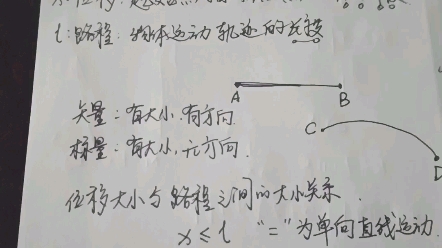 l:路程:物体运动轨迹的长度
A
B
矢量:有大小.有方向
C
标量:有大小,无方向.
D
位移大小与路程之间的大小关系.
x≤l "="为单向直线运动.